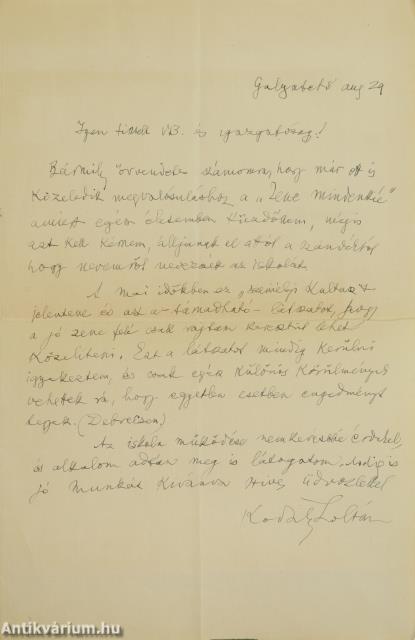 Galyatető aug 29
Igen tisztelt VB. és igazgatóság!
Bármily örvendetes számomra, hogy már ott is
közeledik megvalósuláshoz a „Zene mindenkié"
amiért egész életemben küzdöttem, mégis
azt kell kérnem, álljanak el attól a szándéktól
hogy nevemről nevezzék az iskolát.
A mai időkben ez „személyi kultusz"-t
jelentene és azt a - támadható - látszatot, hogy
a jó zene felé csak rajtam keresztül lehet
közelíteni. Ezt a látszatot mindig kerülni
igyekeztem, és csak egész különös körülmények
vehettek rá, hogy egyetlen esetben engedményt
tegyek. (Debrecen)
Az iskola működése nemkevésbé érdekel,
és alkalom adtán meg is látogatom, addig is
jó munkát kívánva szíves üdvözlettel
Kodály Zoltán
Antikvárium.hu